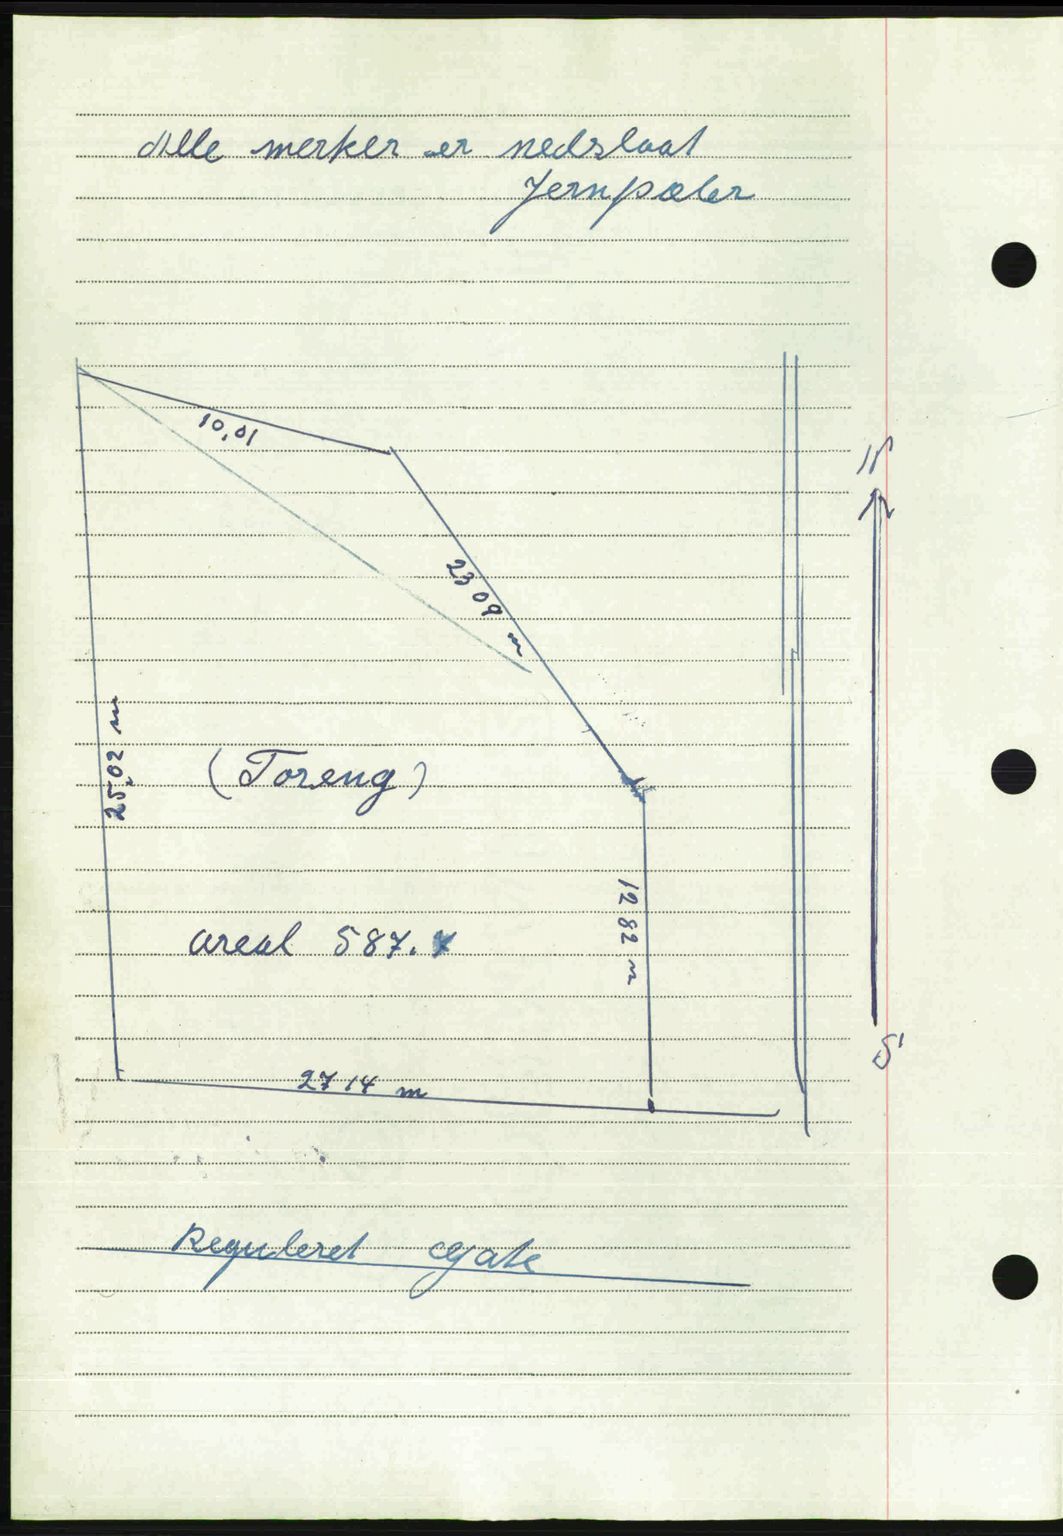 Alle merker er nedslaat
Jernpæler
N
10,01
23 09 m
25,02 m
(Toreng)
12 82 m
areal 587.
S
27 14 m
Reguleret Gate